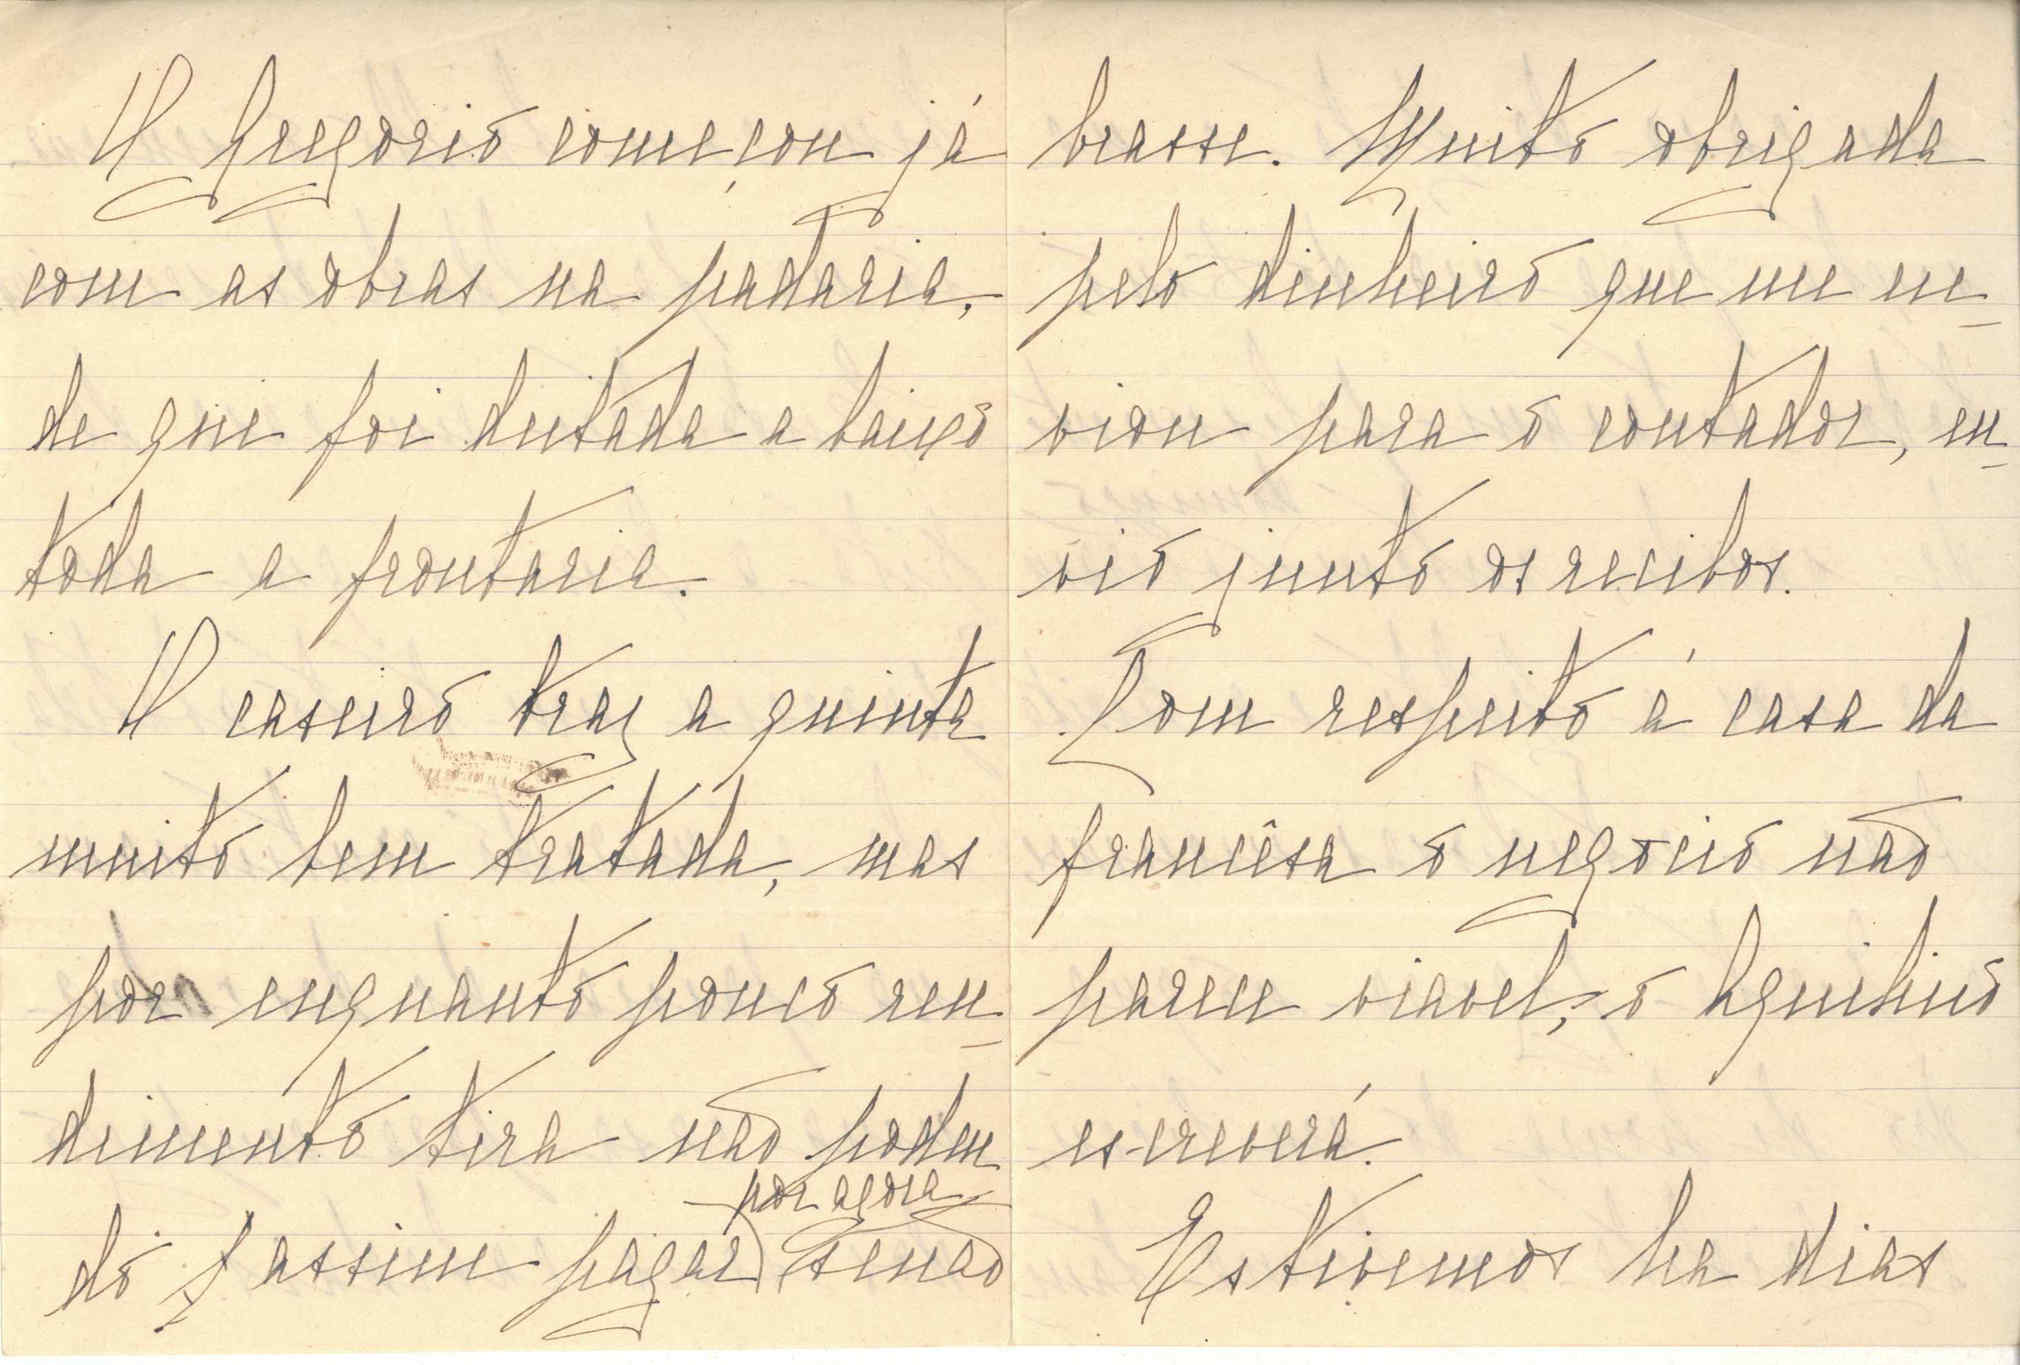 O Gregorio começou já
com as obras na padaria,
de que foi deitada a baixo
toda a frontaria.
O caseiro traz a quinta
muito bem tratada, mas
por enquanto pouco ren-
dimento tira não poden
por agora
do assim pagar senão
brasse. Muito obrigada
pelo dinheiro que me en-
viou para o contador, en-
vio junto os recibos.
Com respeito á casa da
francêsa o negocio não
parece viavel, o Aquilino
escreverá.
Estivemos ha dias